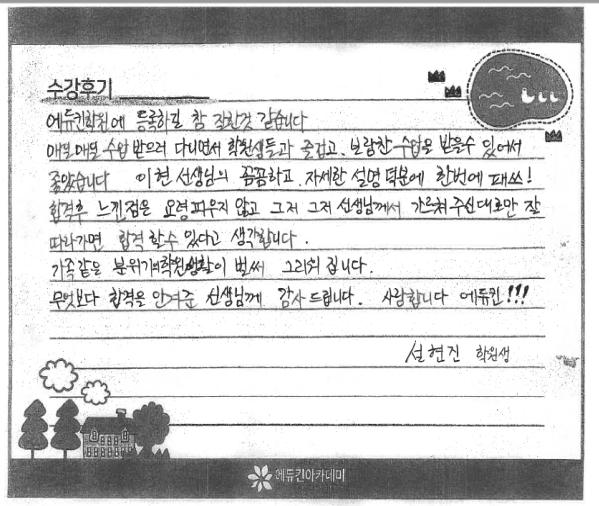 수강후기
에듀킨학원에 등록하길 참 잘한것 같습니다
매일매일 수업 받으러 다니면서 학원생들과 즐겁고, 보람찬 수업을 받을수 있어서
좋았습니다 이현 선생님의 꼼꼼하고, 자세한 설명 덕분에 한번에 패쓰!
합격후 느낀점은 요령피우지 않고 그저 그저 선생님께서 가르쳐주신대로만 잘
따라가면 합격 할수 있다고 생각합니다.
가족같은 분위기의 학원생활이 벌써 그리워 집니다.
무엇보다 합격을 안겨준 선생님께 감사드립니다. 사랑합니다 에듀킨!!!
설현진 학원생
에듀킨아카데미